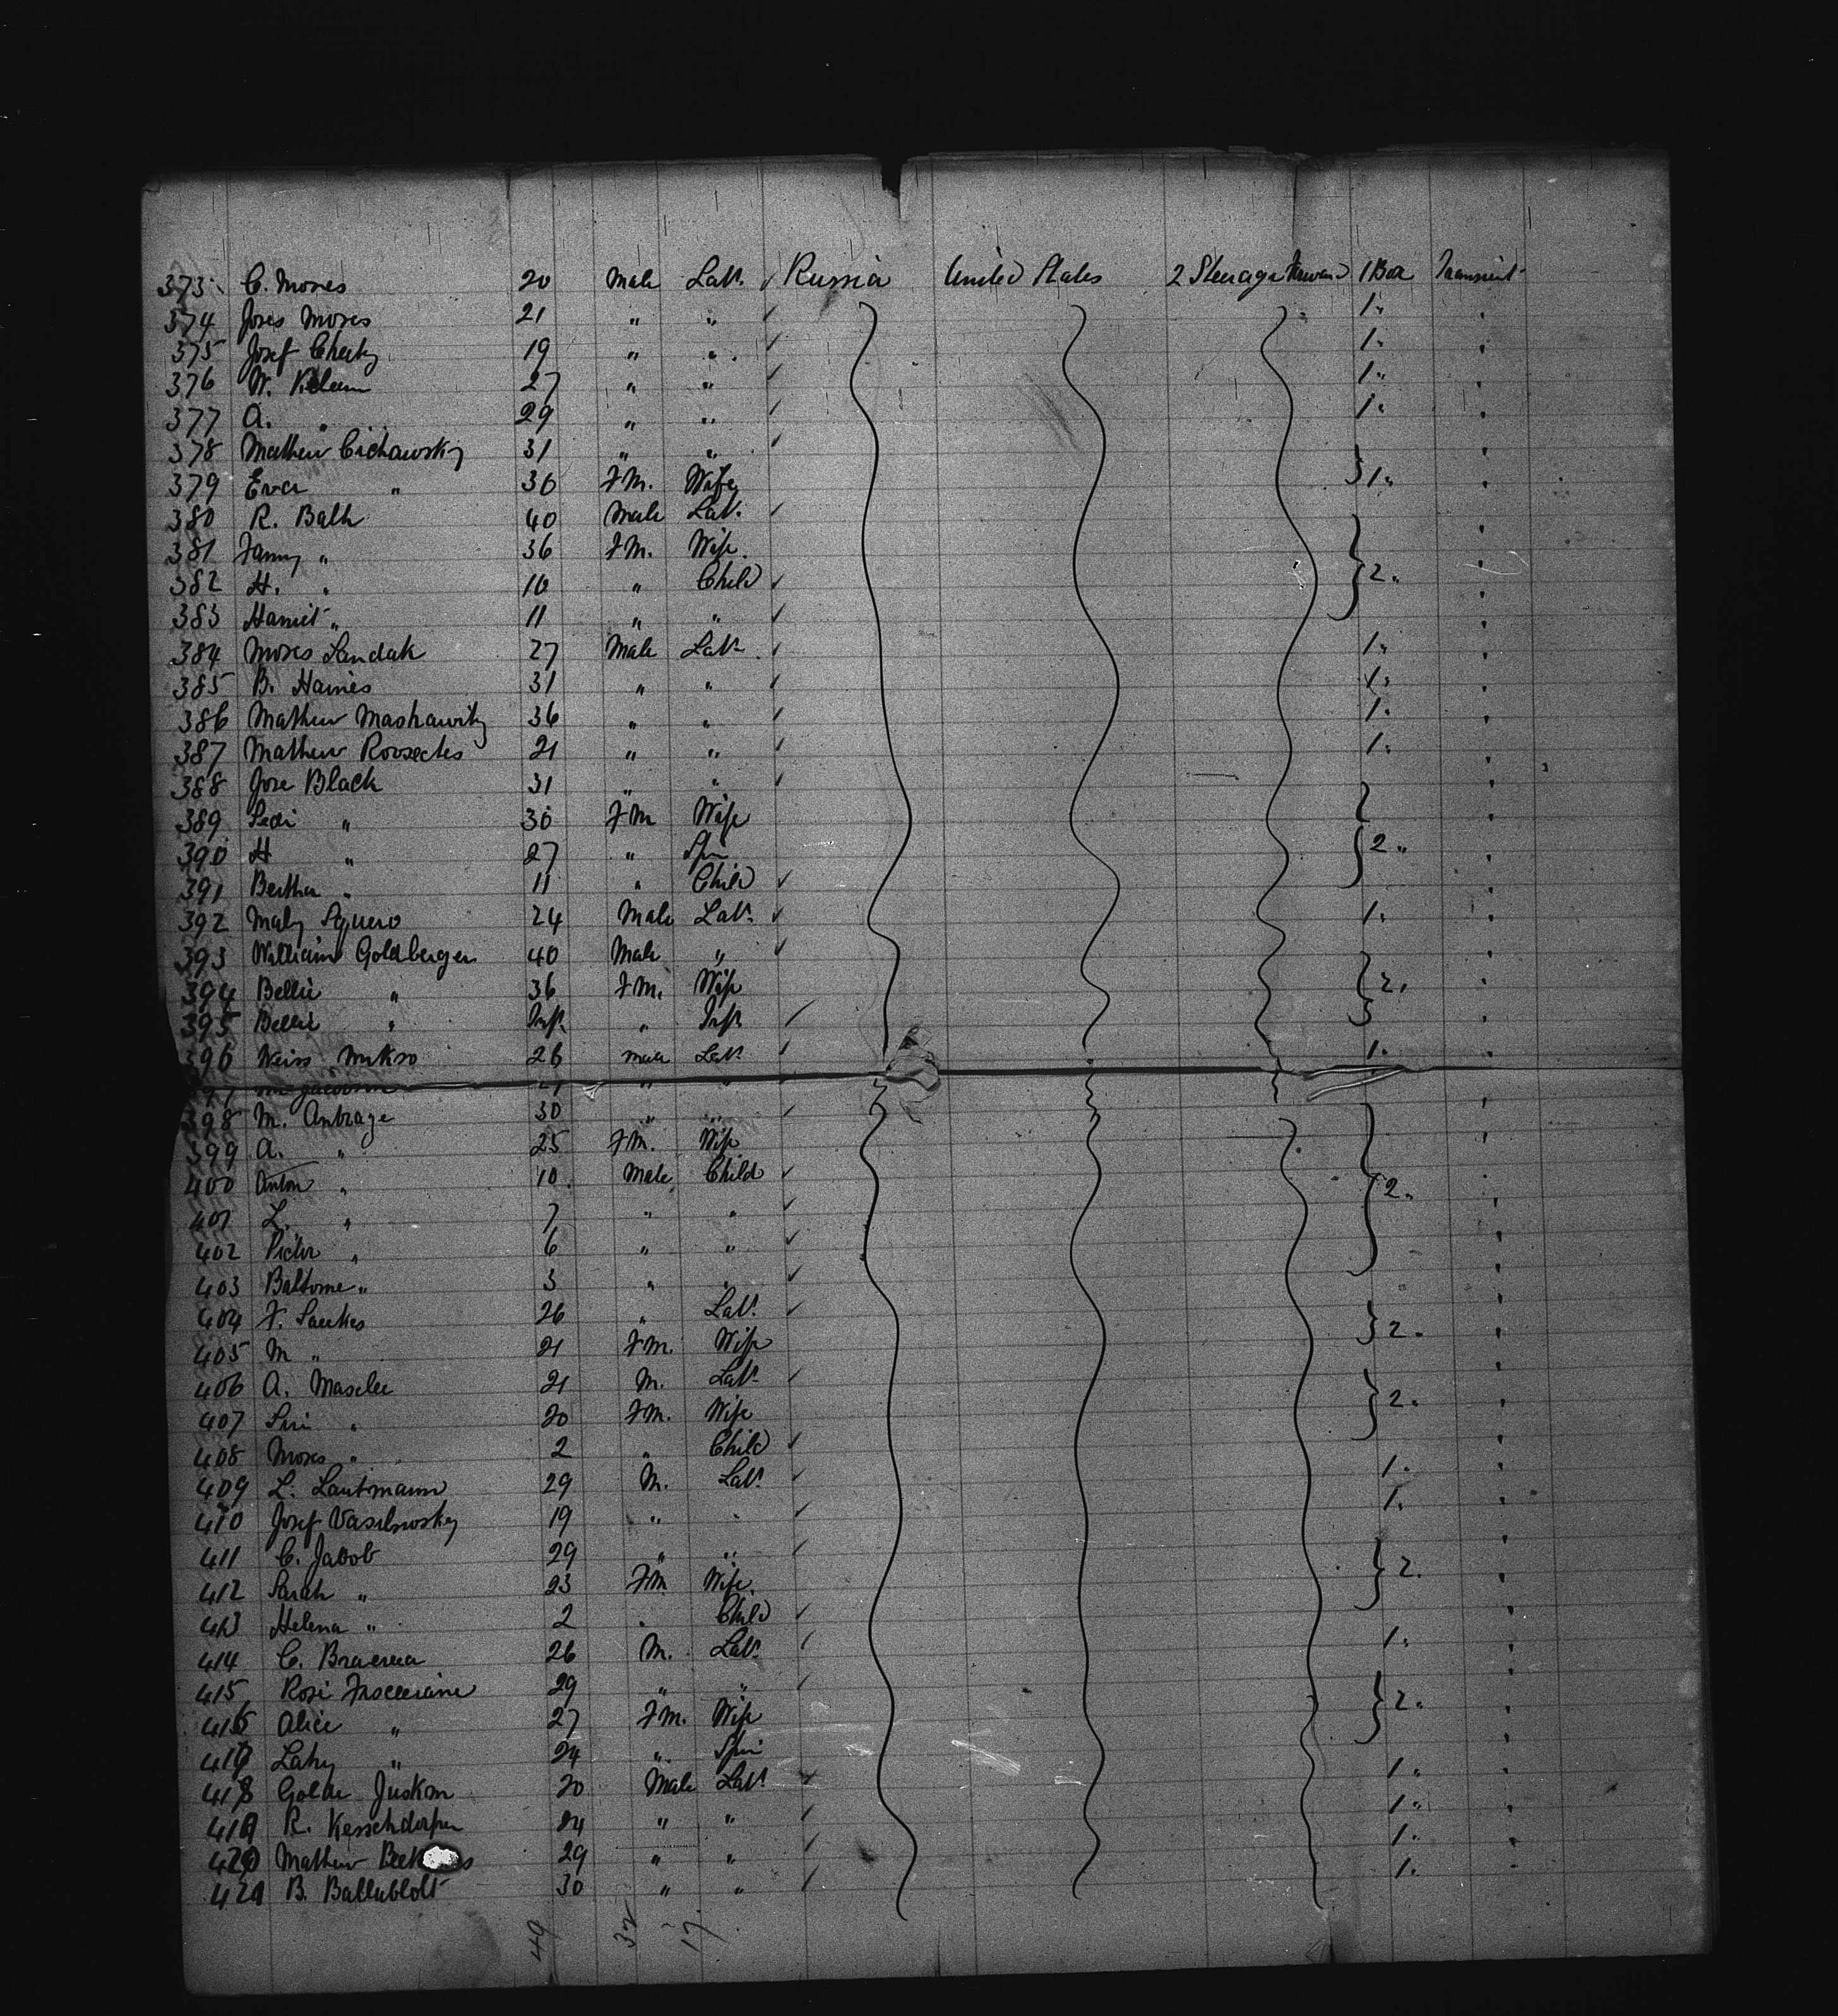 373 C. Moses 20 Male Labr. Russia United States 2 Steerage 1 Box Transient
374 Joses Moses 21 " " 1 "
375 Josef Cheiky 19 " " 1 "
376 W. Kelum 27 " " 1 "
377 A. " 29 " " 1 "
378 Mathew Cichawsky 31 " "
379 Eva " 30 FM. Wife 1 "
380 R. Balk 40 Male Labr.
381 Fanny " 36 FM. Wife.
382 H. " 10 " Child 2 "
383 Harriet " 11 " "
384 Moses Landak 27 Male Labr 1 "
385 B. Harries 31 " " 1 "
386 Mathew Mashawitz 36 " " 1 "
387 Mathew Roosectes 21 " " 1 "
388 Jose Black 31 " "
389 " 30 FM Wife
390 H " 27 " Spin 2 "
391 Bertha " 11 " Child
392 Maly Squero 24 Male Labr. 1 "
393 William Goldberger 40 Male "
394 Bellie " 36 FM. Wife 2 "
395 Bellie " Inft. " Inft
396 Weiss 26 Male Labr 1 "
M. Jacobson " "
398 M. Antrage 30 " "
399 A. " 25 FM. Wife
400 Anton " 10 Male Child
401 L. " 7 " " 2 "
402 " 6 " "
403 Baltome " 3 " "
404 F. Saukes 26 " Labr.
405 M " 21 FM. Wife 2 "
406 A. Maselee 21 M. Labr
407 " 20 FM. Wife 2 "
408 Moses " 2 " Child
409 L. Lautmann 29 M. Labr. 1 "
410 Josef Vasilnosky 19 " " 1 "
411 C. Jacob 29 " "
412 Sarah " 23 FM Wife. 2 "
413 Helena " 2 " Child
414 C. 26 M. Labr. 1 "
415 Rosi 29 " "
416 Alice " 27 FM. Wife 2 "
417 " 24 " Spin
418 Golde Juskom 20 Male Labr. 1 "
419 R. Kerschdorfer 24 " " 1 "
420 Mathew 29 " " 1 "
421 B. Ballublolt 30 " " 1 "
49 32 17